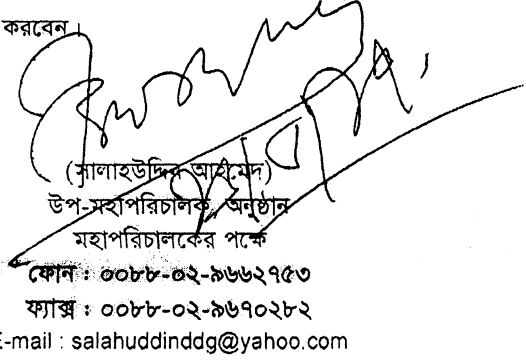 করবেন।
(সালাহউদ্দিন আহমেদ)
উপ-মহাপরিচালক, অনুষ্ঠান
মহাপরিচালকের পক্ষে
ফোন : ০০৮৮-০২-৯৬৬২৭৫৩
ফ্যাক্স : ০০৮৮-০২-৯৬৭০২৮২
E-mail : salahuddinddg@yahoo.com